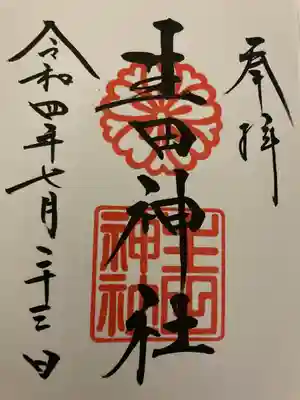 奉拝
生田神社
生田
神社
令和四年七月二十三日